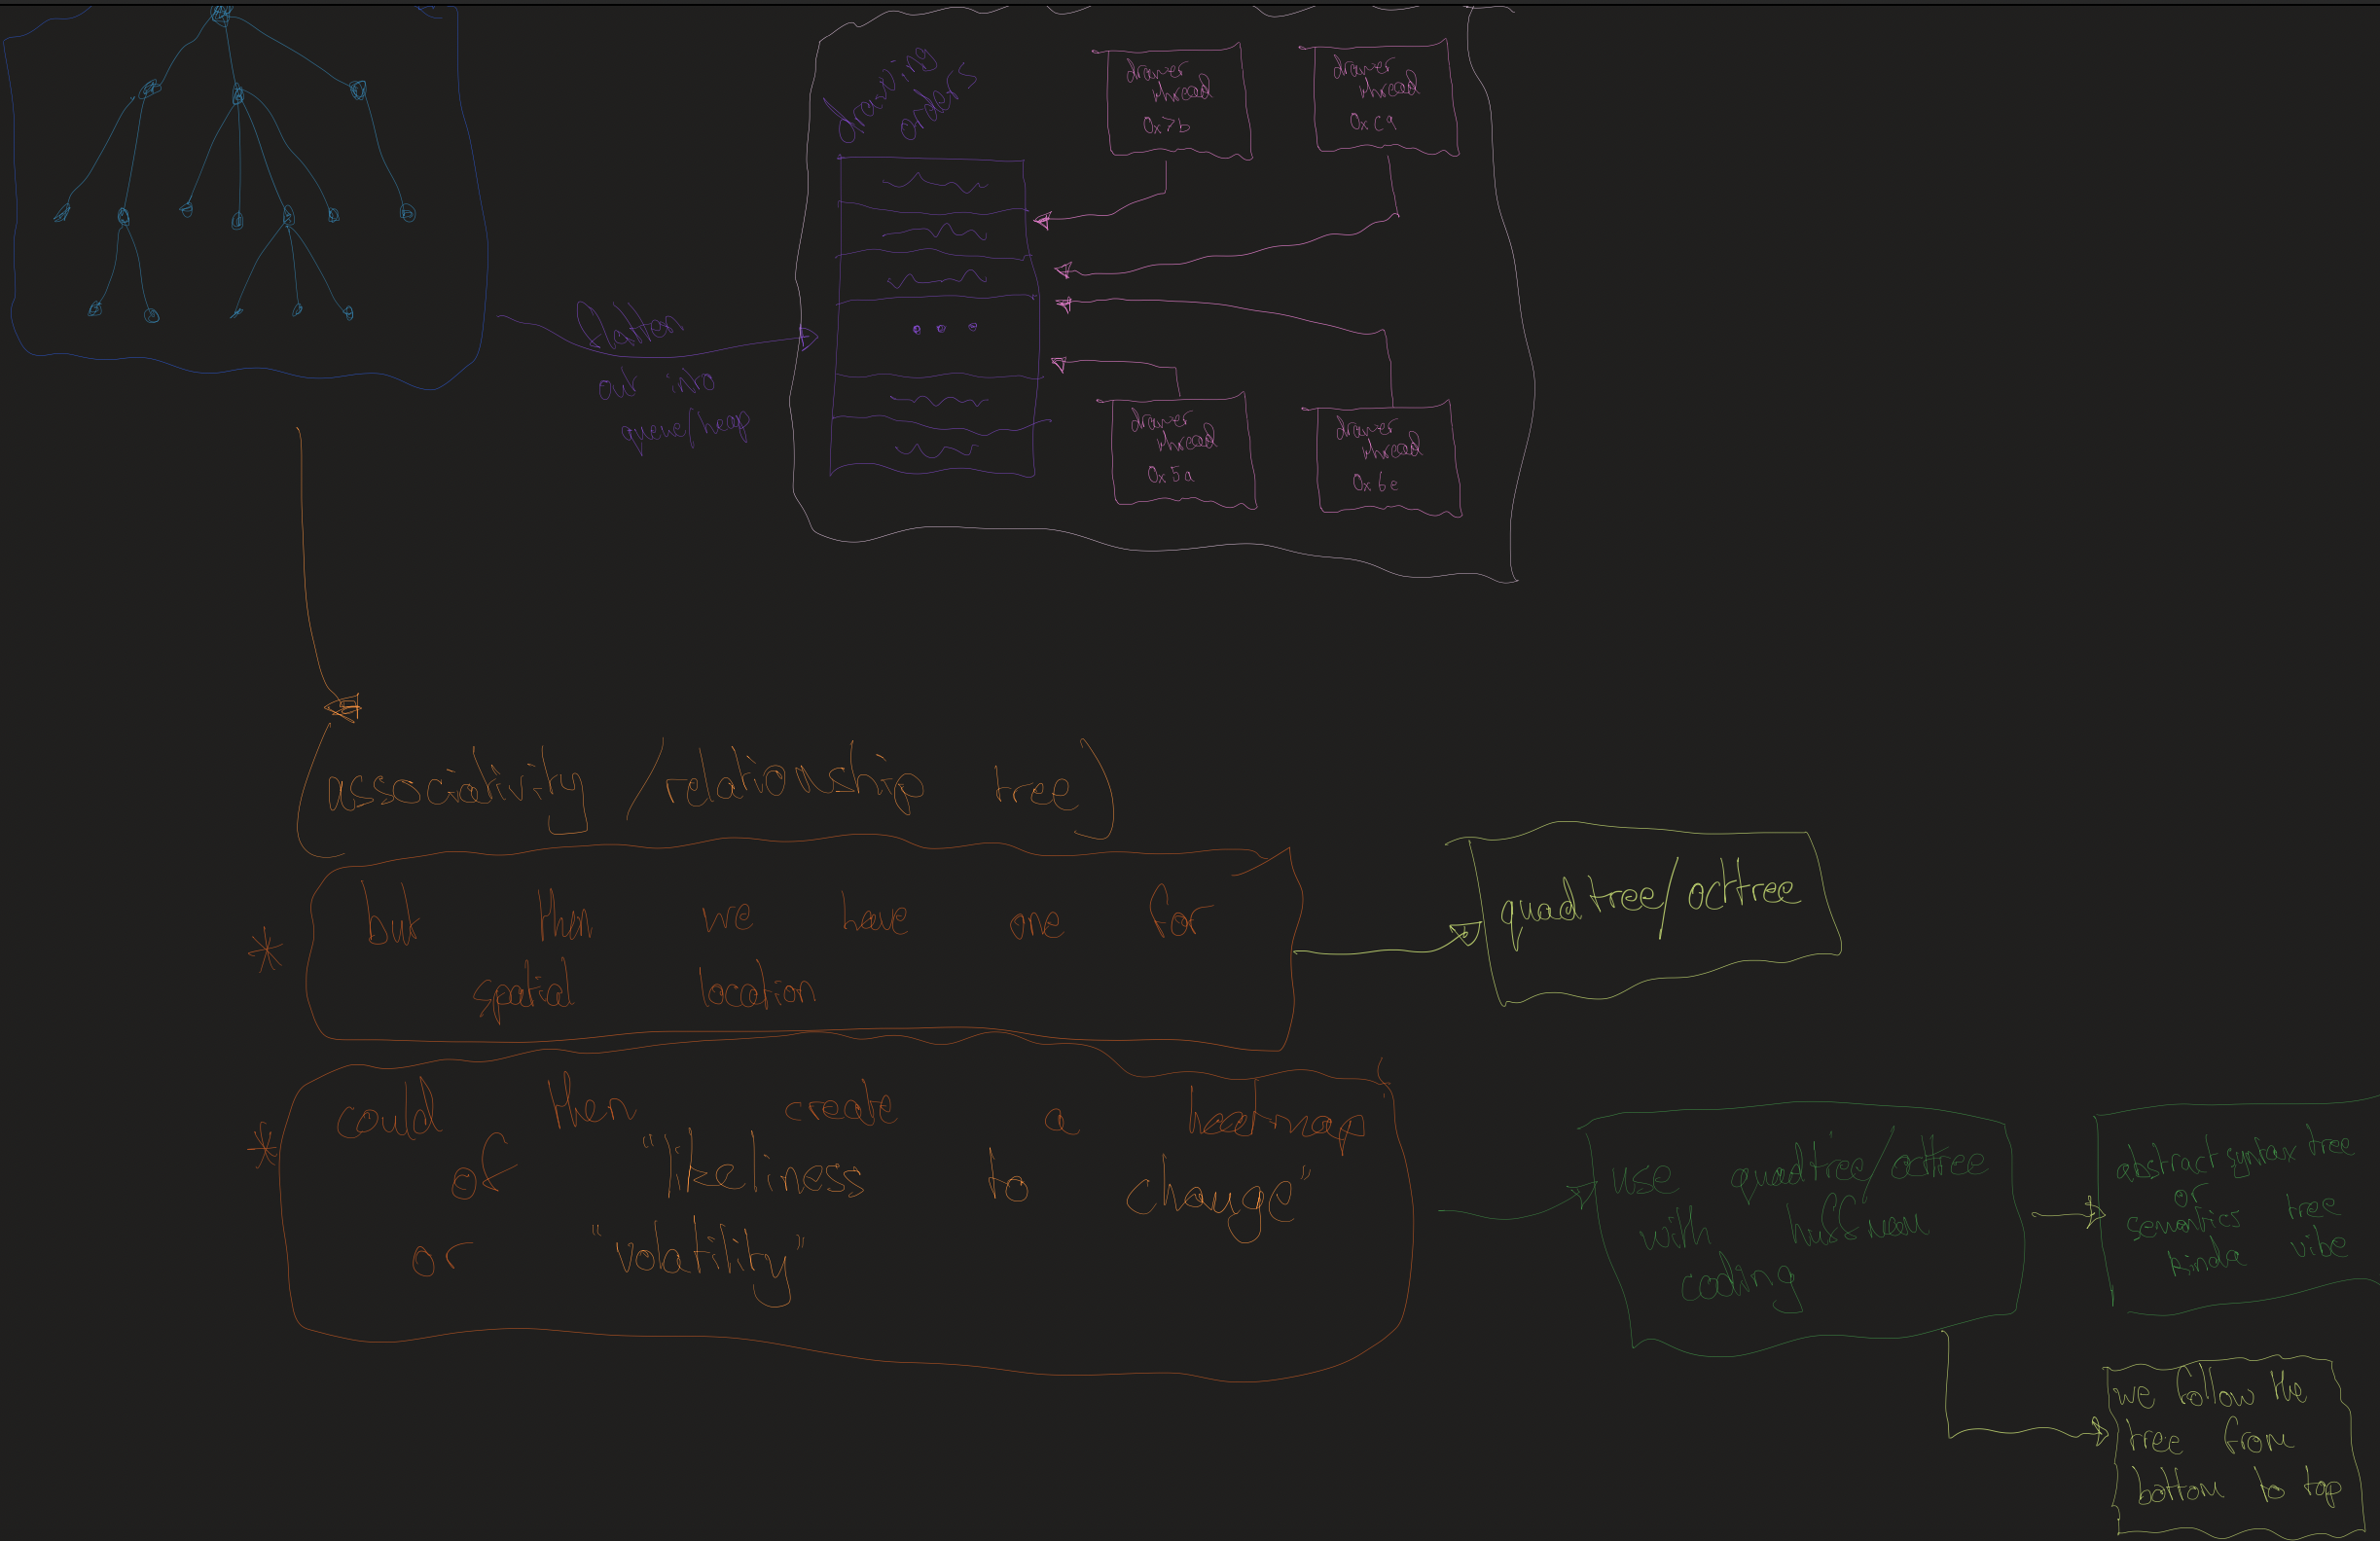 drawing
orders
drawer
thread
0x7b
drawer
thread
0xca
flatten
out into
queue/heap
drawer
thread
0x5a
drawer
thread
0x6e
associativity / relationship tree)
* but then we have one for
spatial location
quadtree/octtree
* could then create a heatmap
of "likeliness to change"
or "volatility"
use quadtree/octtree
with huffman
coding
abstract syntax tree
or
semantics tree
kinda vibe
we follow the
tree from
bottom to top